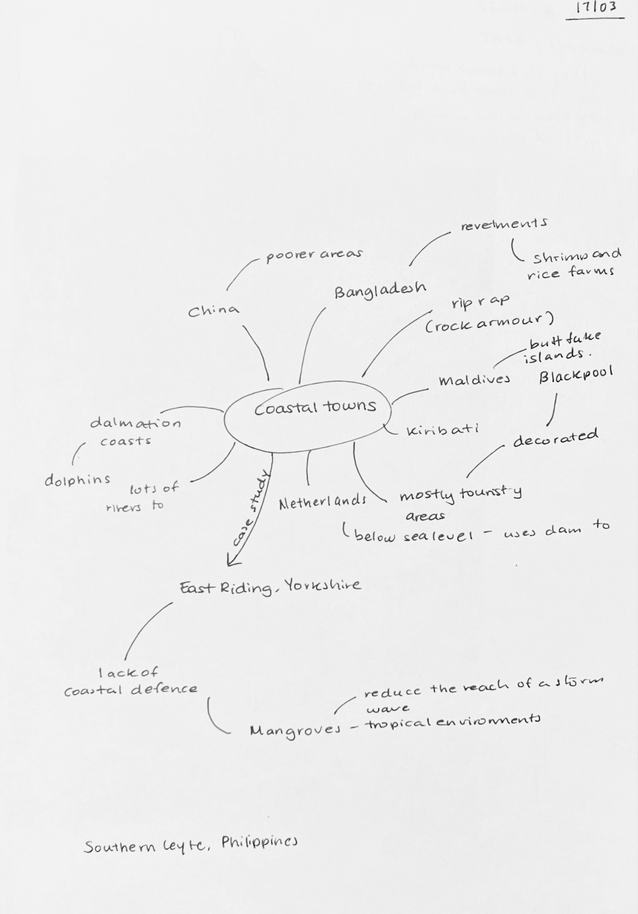 17/03
revetments
poorer areas
shrimp and
rice farms
Bangladesh
China
rip rap
(rock armour)
built fake
islands.
Maldives
Blackpool
Coastal towns
dalmation
coasts
Kiribati
decorated
dolphins
lots of
rivers to
Netherlands
mostly touristy
areas
case study
below sea level - uses dam to
East Riding, Yorkshire
lack of
coastal defence
reduce the reach of a storm
wave
Mangroves - tropical environments
Southern Leyte, Philippines